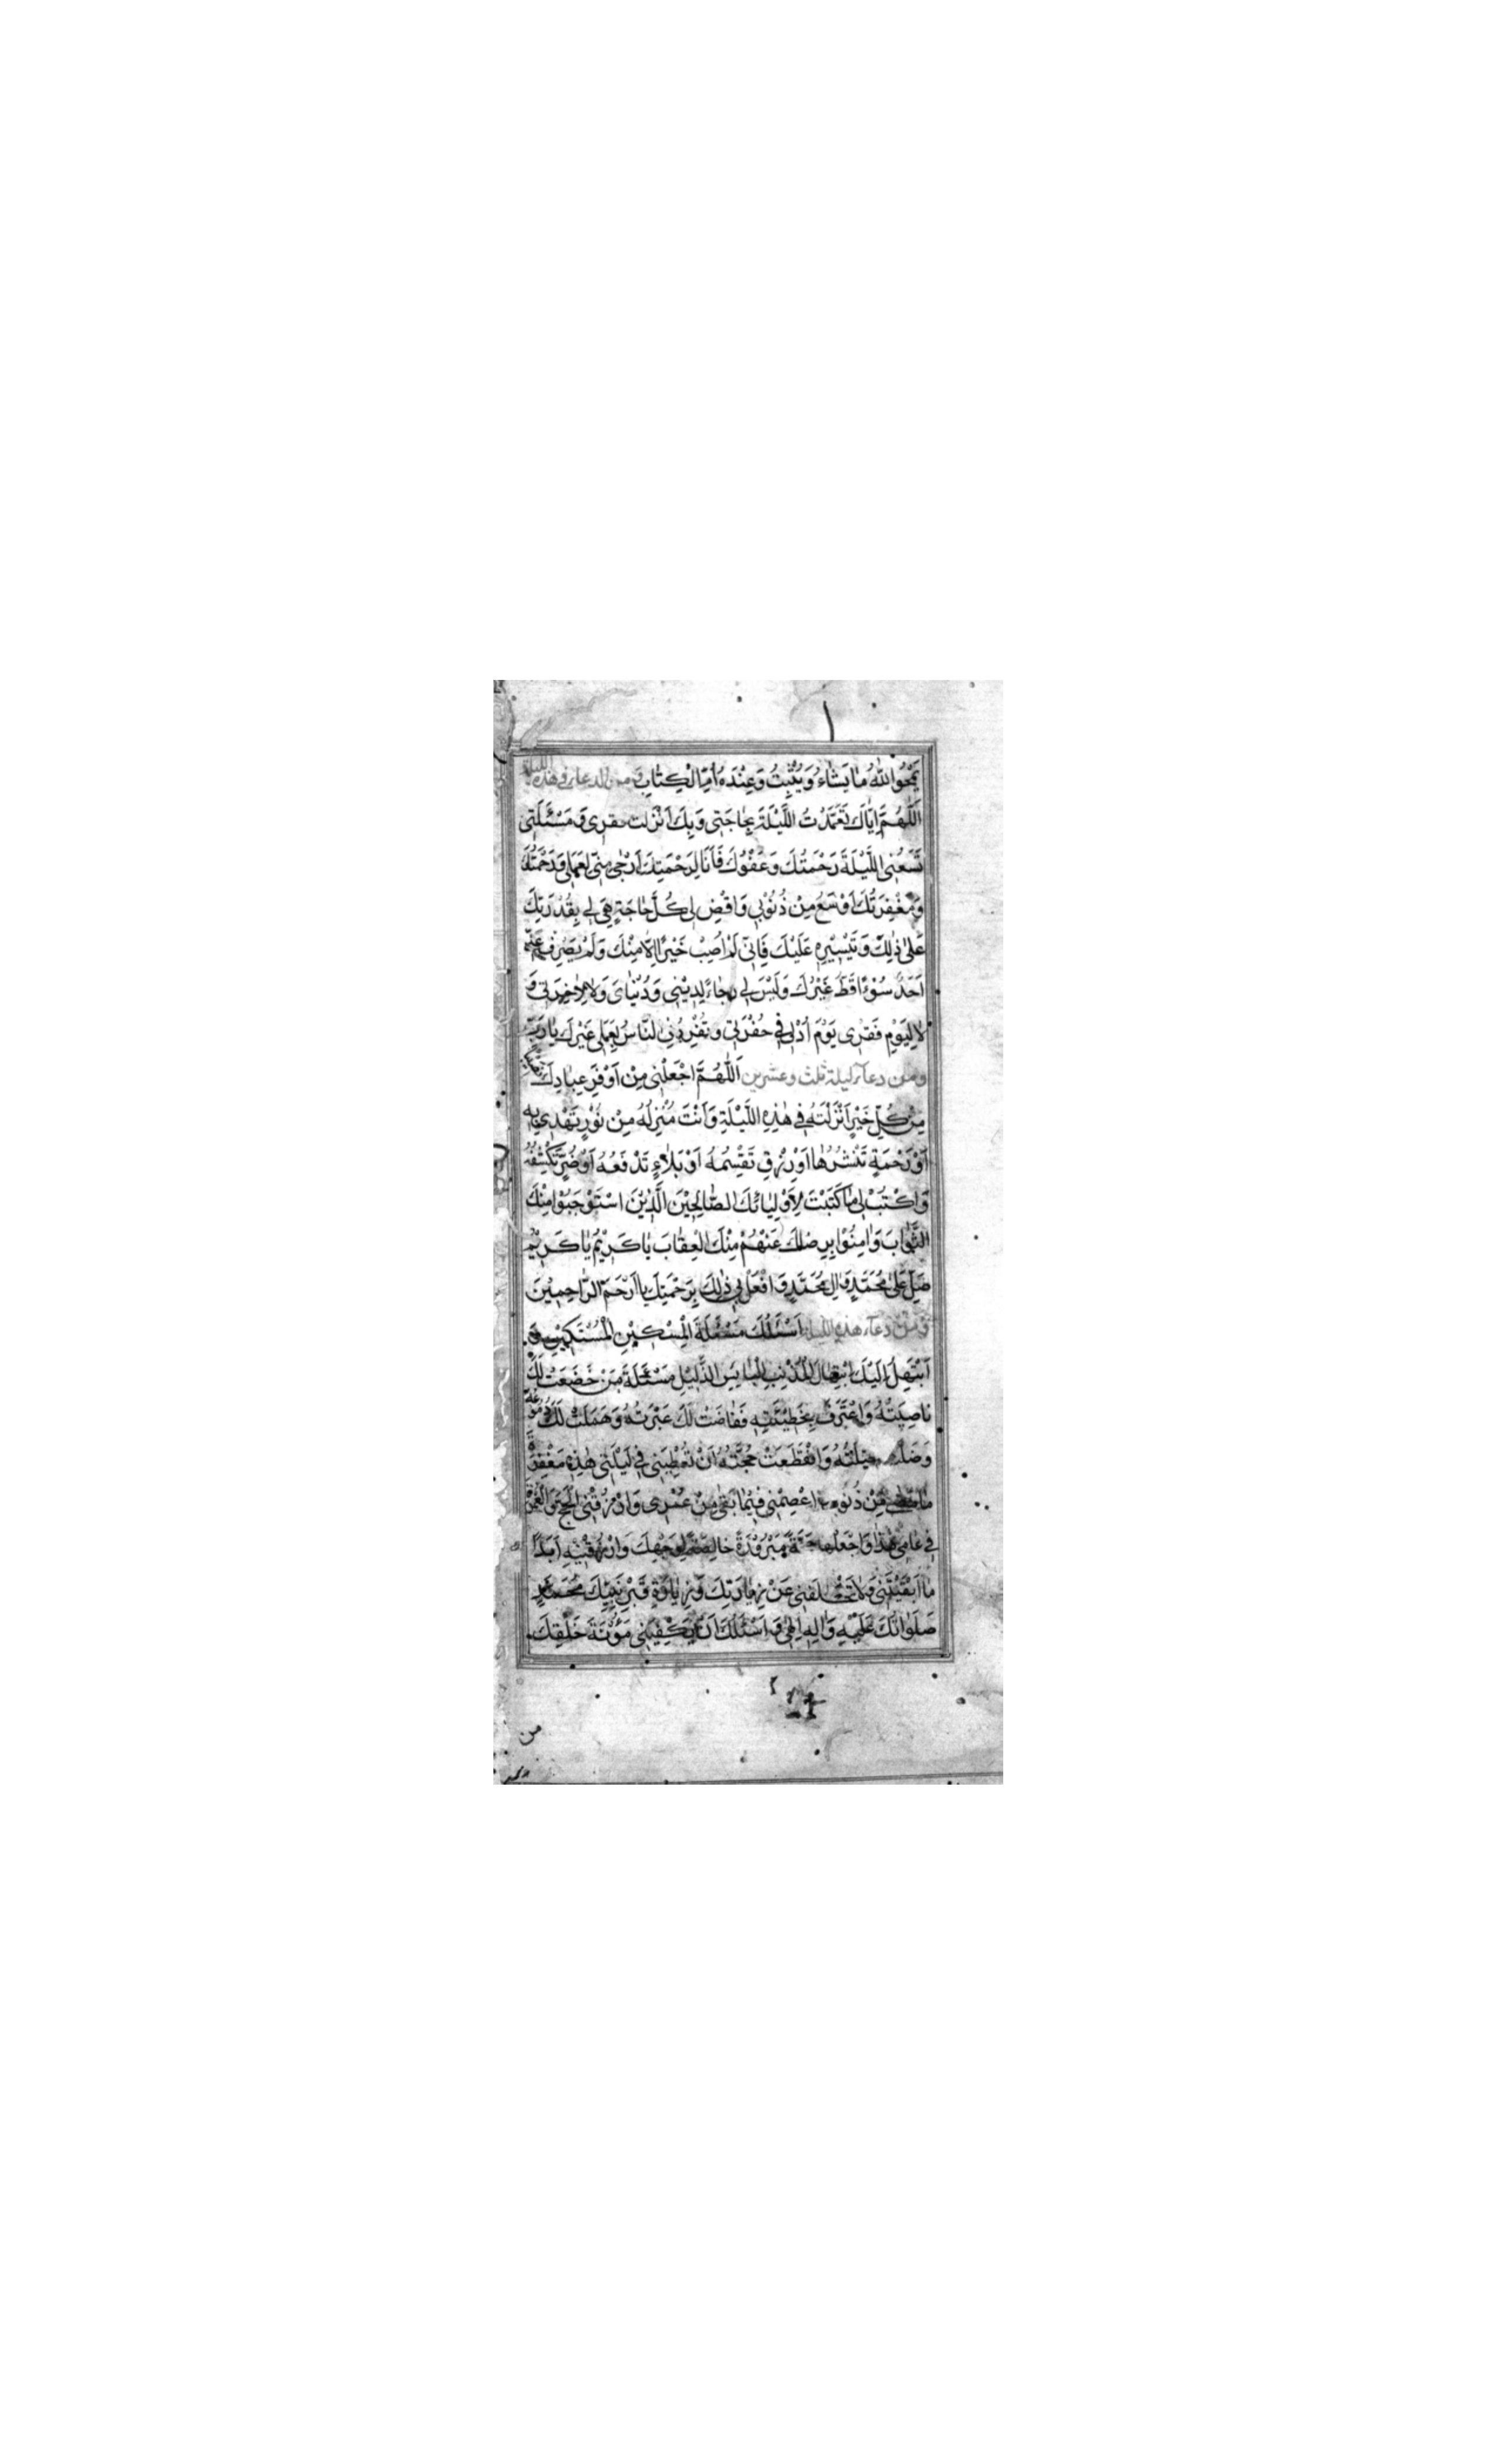 يَمْحُوا اللّٰهُ مٰا يَشٰاءُ وَيُثْبِتُ وَعِنْدَهُ اُمُّ الْكِتٰابِ وَمِن الدعاء فى هذه الليلة
اَللّٰهُمَّ اِيّٰاكَ تَعَمَّدْتُ اللَّيْلَةَ بِحٰاجَتِى وَبِكَ اَنْزَلْتُ فقرى وَمَسْئَلَتِى
تَسَعُنِى اللَّيْلَةَ رَحْمَتُكَ وَعَفْوُكَ فَاَنَا لِرَحْمَتِكَ اَرْجٰى مِنّى لِعَمَلِى وَرَحْمَتُكَ
وَمَغْفِرَتُكَ اَوْسَعُ مِنْ ذُنُوْبِى وَاقْضِ لِى كُلَّ حٰاجَةٍ هِىَ لِى بِقُدْرَتِكَ
عَلىٰ ذٰلِكَ وَتَيْسِيْرِهِ عَلَيْكَ فَاِنّى لَمْ اُصِبْ خَيْرًا اِلّٰا مِنْكَ وَلَمْ يَصْرِفْ عَنّى
اَحَدٌ سُوْءًا قَطُّ غَيْرُكَ وَلَيْسَ لِى رجٰاء لِدِيْنِى وَدُنْيٰاىَ وَلٰا لِاٰخِرَتِى وَ
لٰا لِيَوْمِ فَقْرِى يَوْمَ اُدْلىٰ فِى حُفْرَتِى وتُفْرِدُنِى النّٰاسُ بِعَمَلِى غَيْرَكَ يٰا رَبَّ
ومن دعاء ليلة ثلث وعشرين اَللّٰهُمَّ اجْعَلْنِى مِنْ اَوْفَرِ عِبٰادِكَ نَصِيْبًا
مِنْ كُلِّ خَيْرٍ اَنْزَلْتَهُ فِى هٰذِهِ اللَّيْلَةِ وَاَنْتَ مُنْزِلُهُ مِنْ نُوْرٍ تَهْدِى بِهِ
اَوْ رَحْمَةٍ تَنْشُرُهٰا اَوْ رِزْقٍ تَقْسِمُهُ اَوْ بَلٰاءٍ تَدْفَعُهُ اَوْ ضُرٍّ تَكْشِفُهُ
وَاكْتُبْ لِى مٰا كَتَبْتَ لِاَوْلِيٰائِكَ الصّٰالِحِيْنَ الَّذِيْنَ اسْتَوْجَبُوْا مِنْكَ
الثَّوٰابَ وَاٰمِنُوْا بِرِضٰاكَ عَنْهُمْ مِنْكَ الْعِقٰابَ يٰا كَرِيْمُ يٰا كَرِيْمُ
صَلِّ عَلىٰ مُحَمَّدٍ وَاٰلِ مُحَمَّدٍ وَ افْعَلْ بِى ذٰلِكَ بِرَحْمَتِكَ يٰا اَرْحَمَ الرّٰاحِمِيْنَ
وَمِنْ دعاء هذه الليلة اَسْئَلُكَ مَسْئَلَةَ الْمِسْكِيْنِ الْمُسْتَكِيْنِ وَ
اَبْتَهِلُ اِلَيْكَ ابْتِهٰالَ الْمُذْنِبِ الْبٰايِسِ الذَّلِيْلِ مَسْئَلَةَ مَنْ خَضَعَتْ لَكَ
نٰاصِيَتُهُ وَاعْتَرَفَ بِخَطِيْئَتِهِ فَفٰاضَتْ لَكَ عَبْرَتُهُ وَهَمَلَتْ لَكَ دُمُوعُهُ
وَضَلَّتْ حِيْلَتُهُ وَانْقَطَعَتْ حُجَّتُهُ اَنْ تُعْطِيَنِى فِى لَيْلَتِى هٰذِهِ مَغْفِرَةَ
مٰا مَضىٰ مِنْ ذُنُوبِى وَ اعْصِمْنِى فِيْمٰا بَقِىَ مِنْ عُمْرِى وَارْزُقْنِى الْحَجَّ وَالْعُمْرَةَ
فِى عٰامِى هٰذٰا وَاجْعَلْهٰا حَجَّةً مَبْرُوْرَةً خٰالِصَةً لِوَجْهِكَ وَارْزُقْنِيْهِ اَبَدًا
مٰا اَبْقَيْتَنِى وَلٰا تُخْلِنِى عَنْ زِيٰارَتِكَ وَزِيٰارَةِ قَبْرِ نَبِيِّكَ مُحَمَّدٍ
صَلَوٰاتُكَ عَلَيْهِ وَاٰلِهِ اِلٰهِى وَ اَسْئَلُكَ اَنْ تَكْفِيَنِى مَؤُنَةَ خَلْقِكَ
من